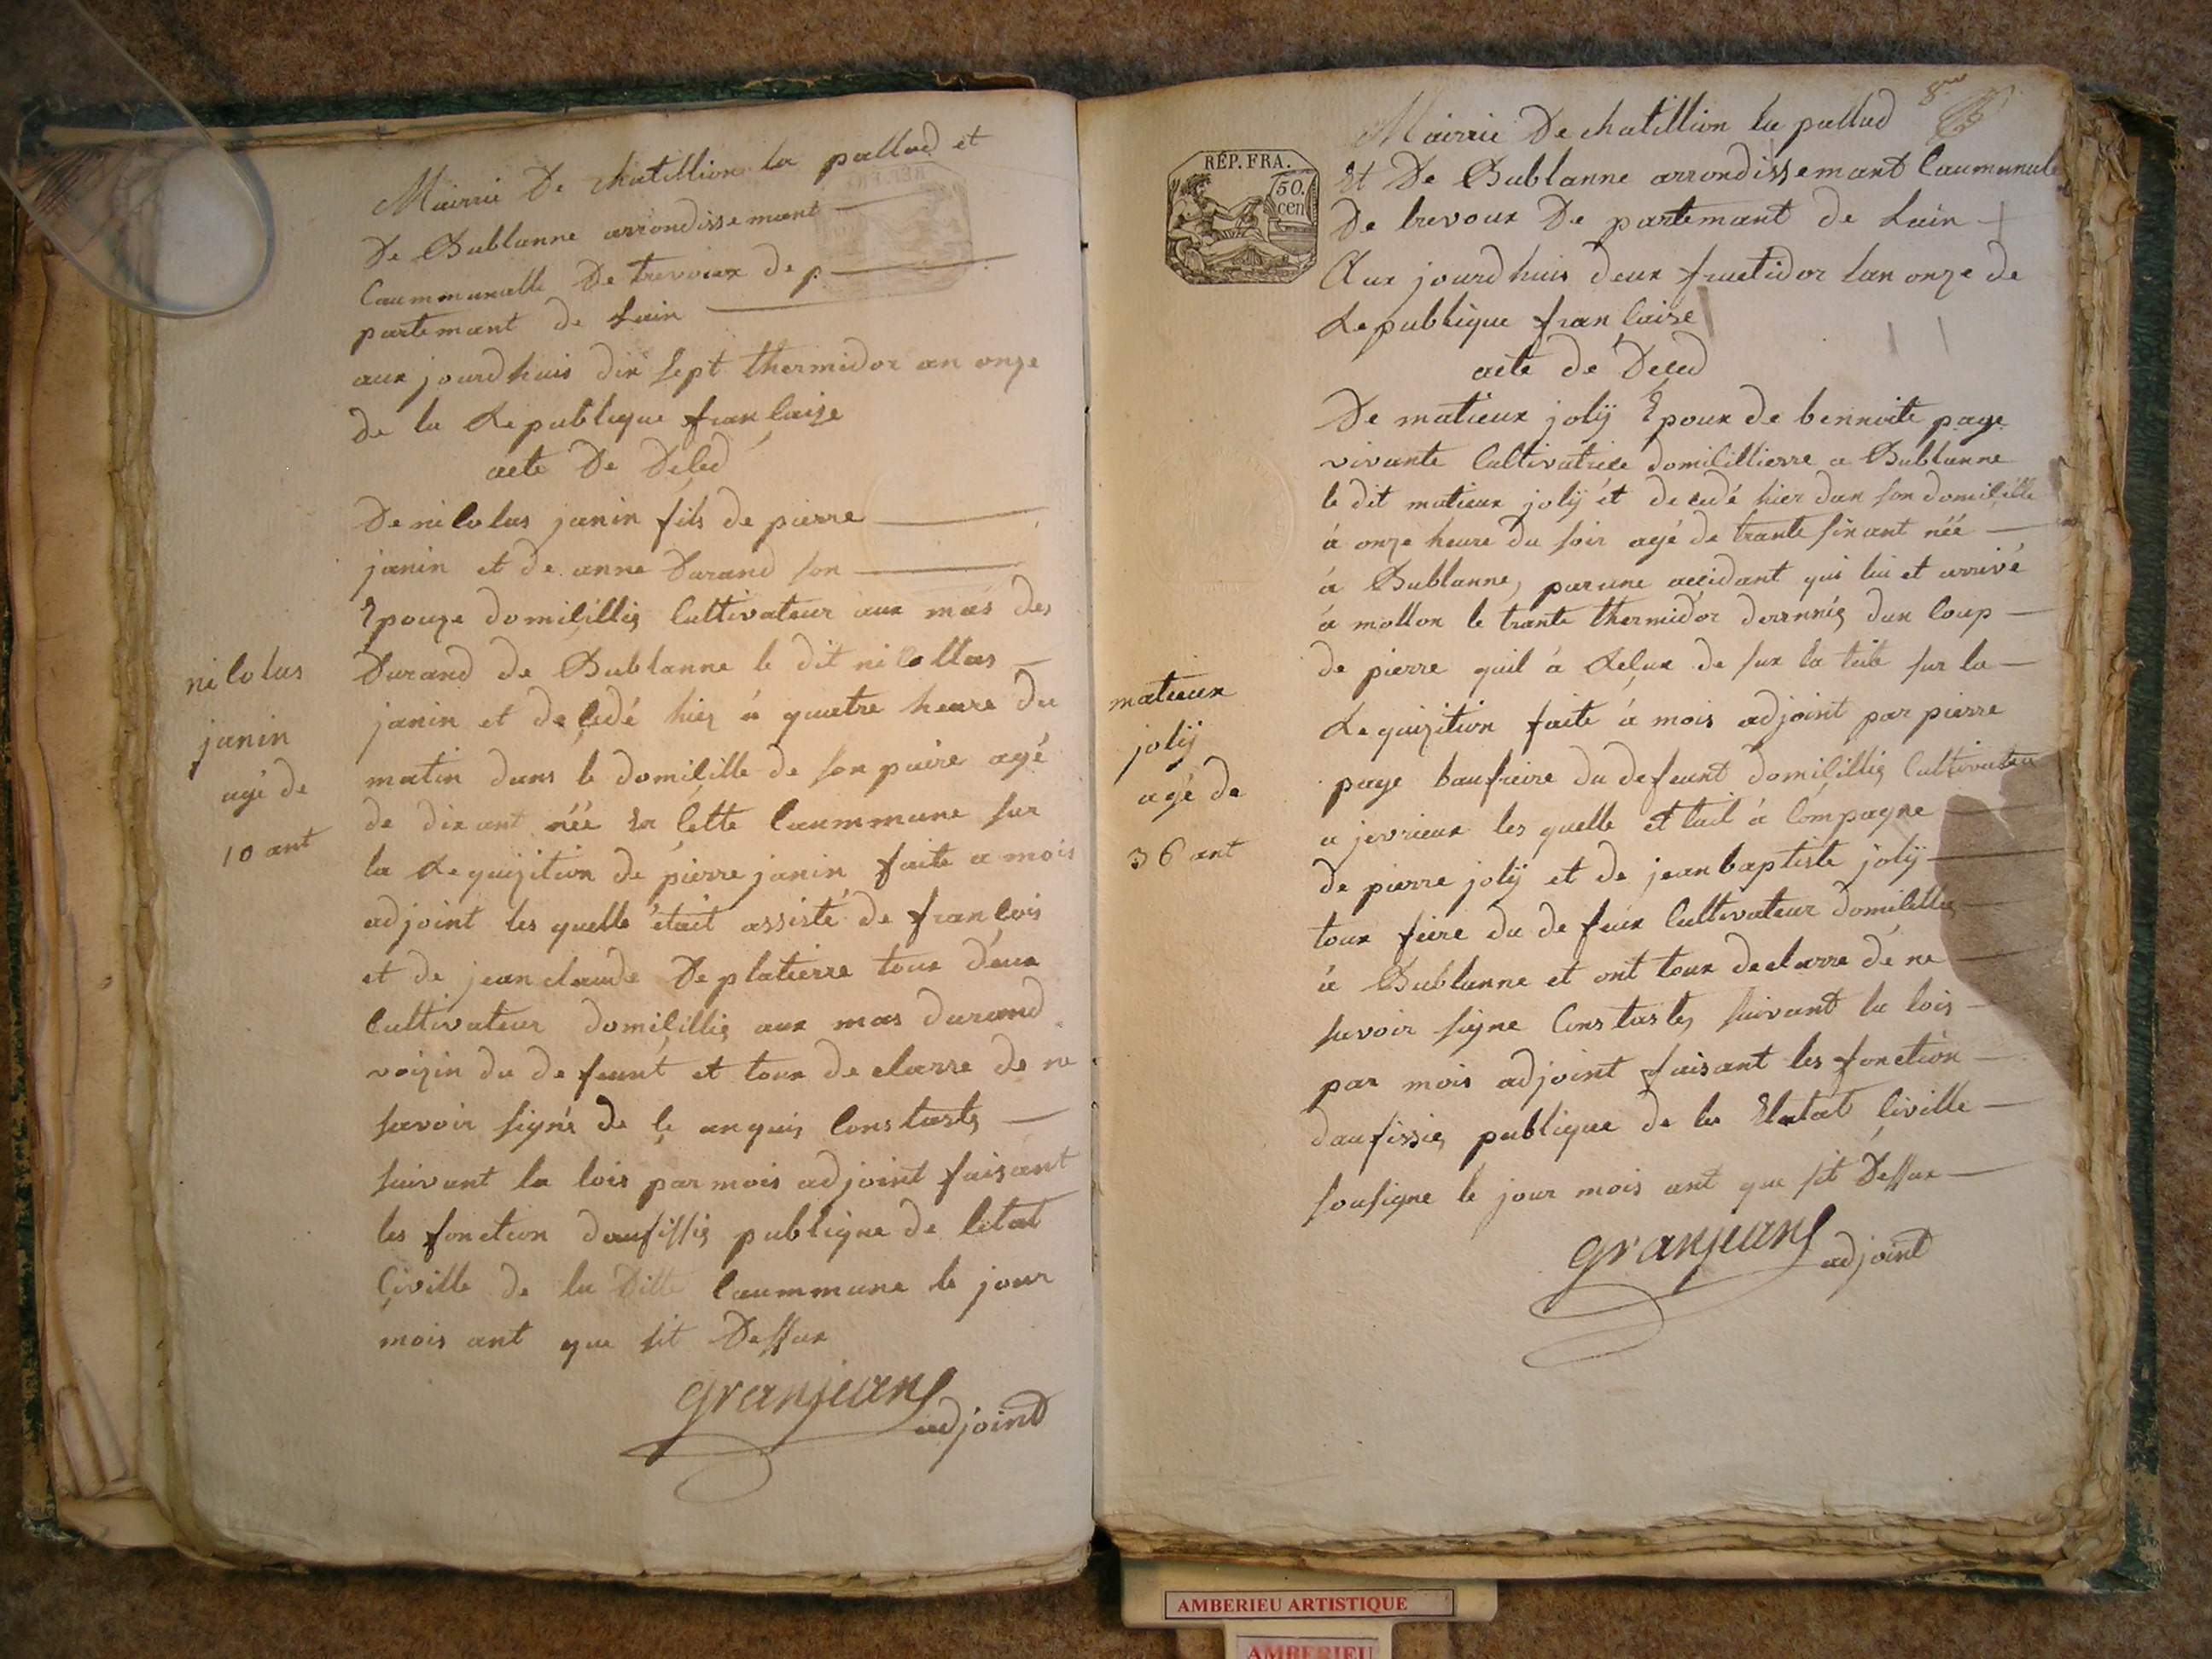 Mairrie De chatillion la pallud et
De Bublanne arrondissemant
Caummunalle De trevoux de p
partemant de Lain
aux jourdhuis dix sept thermidor an onze
de la Republique francaise
acte De Deced
De nicolas janin fils de pierre
janin et de anne Durand son
Epouze domicillie Cultivateur aux mas des
Durand de Bublanne le dit nicollas
janin et decedé hier á quatre heure du
matin dans le domicille de son paire agé
de dix ant néé en cette Caummune sur
la Requizition de pierre janin faite a mois
adjoint les quelle était assisté de francois
et de jean claude Deplatierre toux deux
Cultivateur domicillie aux mas durand
voizin du defeunt et toux declarre de ne
savoir signé de ce anquis Constasté
suivant la lois par mois adjoint faisant
les fonction daufissie publique de letat
Civille de la Ditte Caummune le jour
mois ant que sit Dessux
granjean
adjoint
nicolas
janin
agé de
10 ant
8
Mairrie De chatillion la pallud
RÉP. FRA.
50.
cen
Et De Bublanne arrondissemant Caummunale
De trevoux De partemant de Lain
Aux jourdhuis deux fructidor lan onze de
Republique francaise
acte de Deced
De matieux jolÿ Epoux de bennoite page
vivante Cultivatrice domicillierre a Bublanne
le dit matieux jolÿ ét decedé hier dan son domicille
á onze heure du soir agé de trante six ant néé
á Bublanne, par une accidant qui lui et arrivé
á mollon le trante thermidor dernnié dun Coup
de pierre quil á Recux de sux la taite sur la
Requizition faite á mois adjoint par pierre
page baufreire du defeunt domicillie Cultivateur
a jevrieux les quelle et tait á Compagne
de pierre jolÿ et de jean baptiste jolÿ
toux freire du defeux Cultivateur domicillie
á Bublanne et ont toux declarre dé ne
savoir signe Constasté suivant la lois
par mois adjoint faisant les fonction
daufissie publique de la Etatat Civille
sousigne le jour mois ant que sit Dessux
granjean
adjoint
matieux
jolÿ
agé de
36 ant
AMBERIEU ARTISTIQUE
AMBERIEU